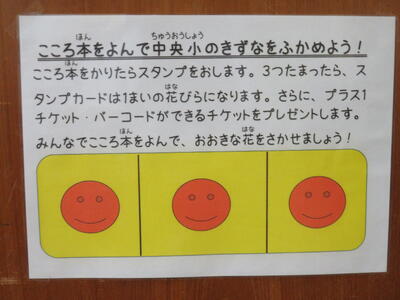 こころ本をよんで中央小のきずなをふかめよう！
こころ本をかりたらスタンプをおします。3つたまったら、ス
タンプカードは1まいの花びらになります。さらに、プラス1
チケット・バーコードができるチケットをプレゼントします。
みんなでこころ本をよんで、おおきな花をさかせましょう！